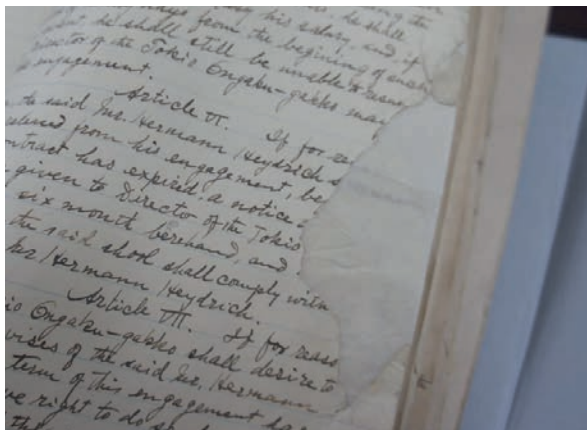 his salary, and, if
days from the begining of such
he shall still be unable to
Director of the Tokio Ongaku-gakko may
engagement.
Article VI. If for
to said Mr. Hermann Heydrich
from his engagement, be
contract has expired, a notice
given to Director of the Tokio
six month beforehand, and
the said shool shall comply with
Hermann Heydrich.
Article VII. If for
Ongaku-gakko shall desire to
of the said Mr. Hermann
term of this engagement
right to do so
the